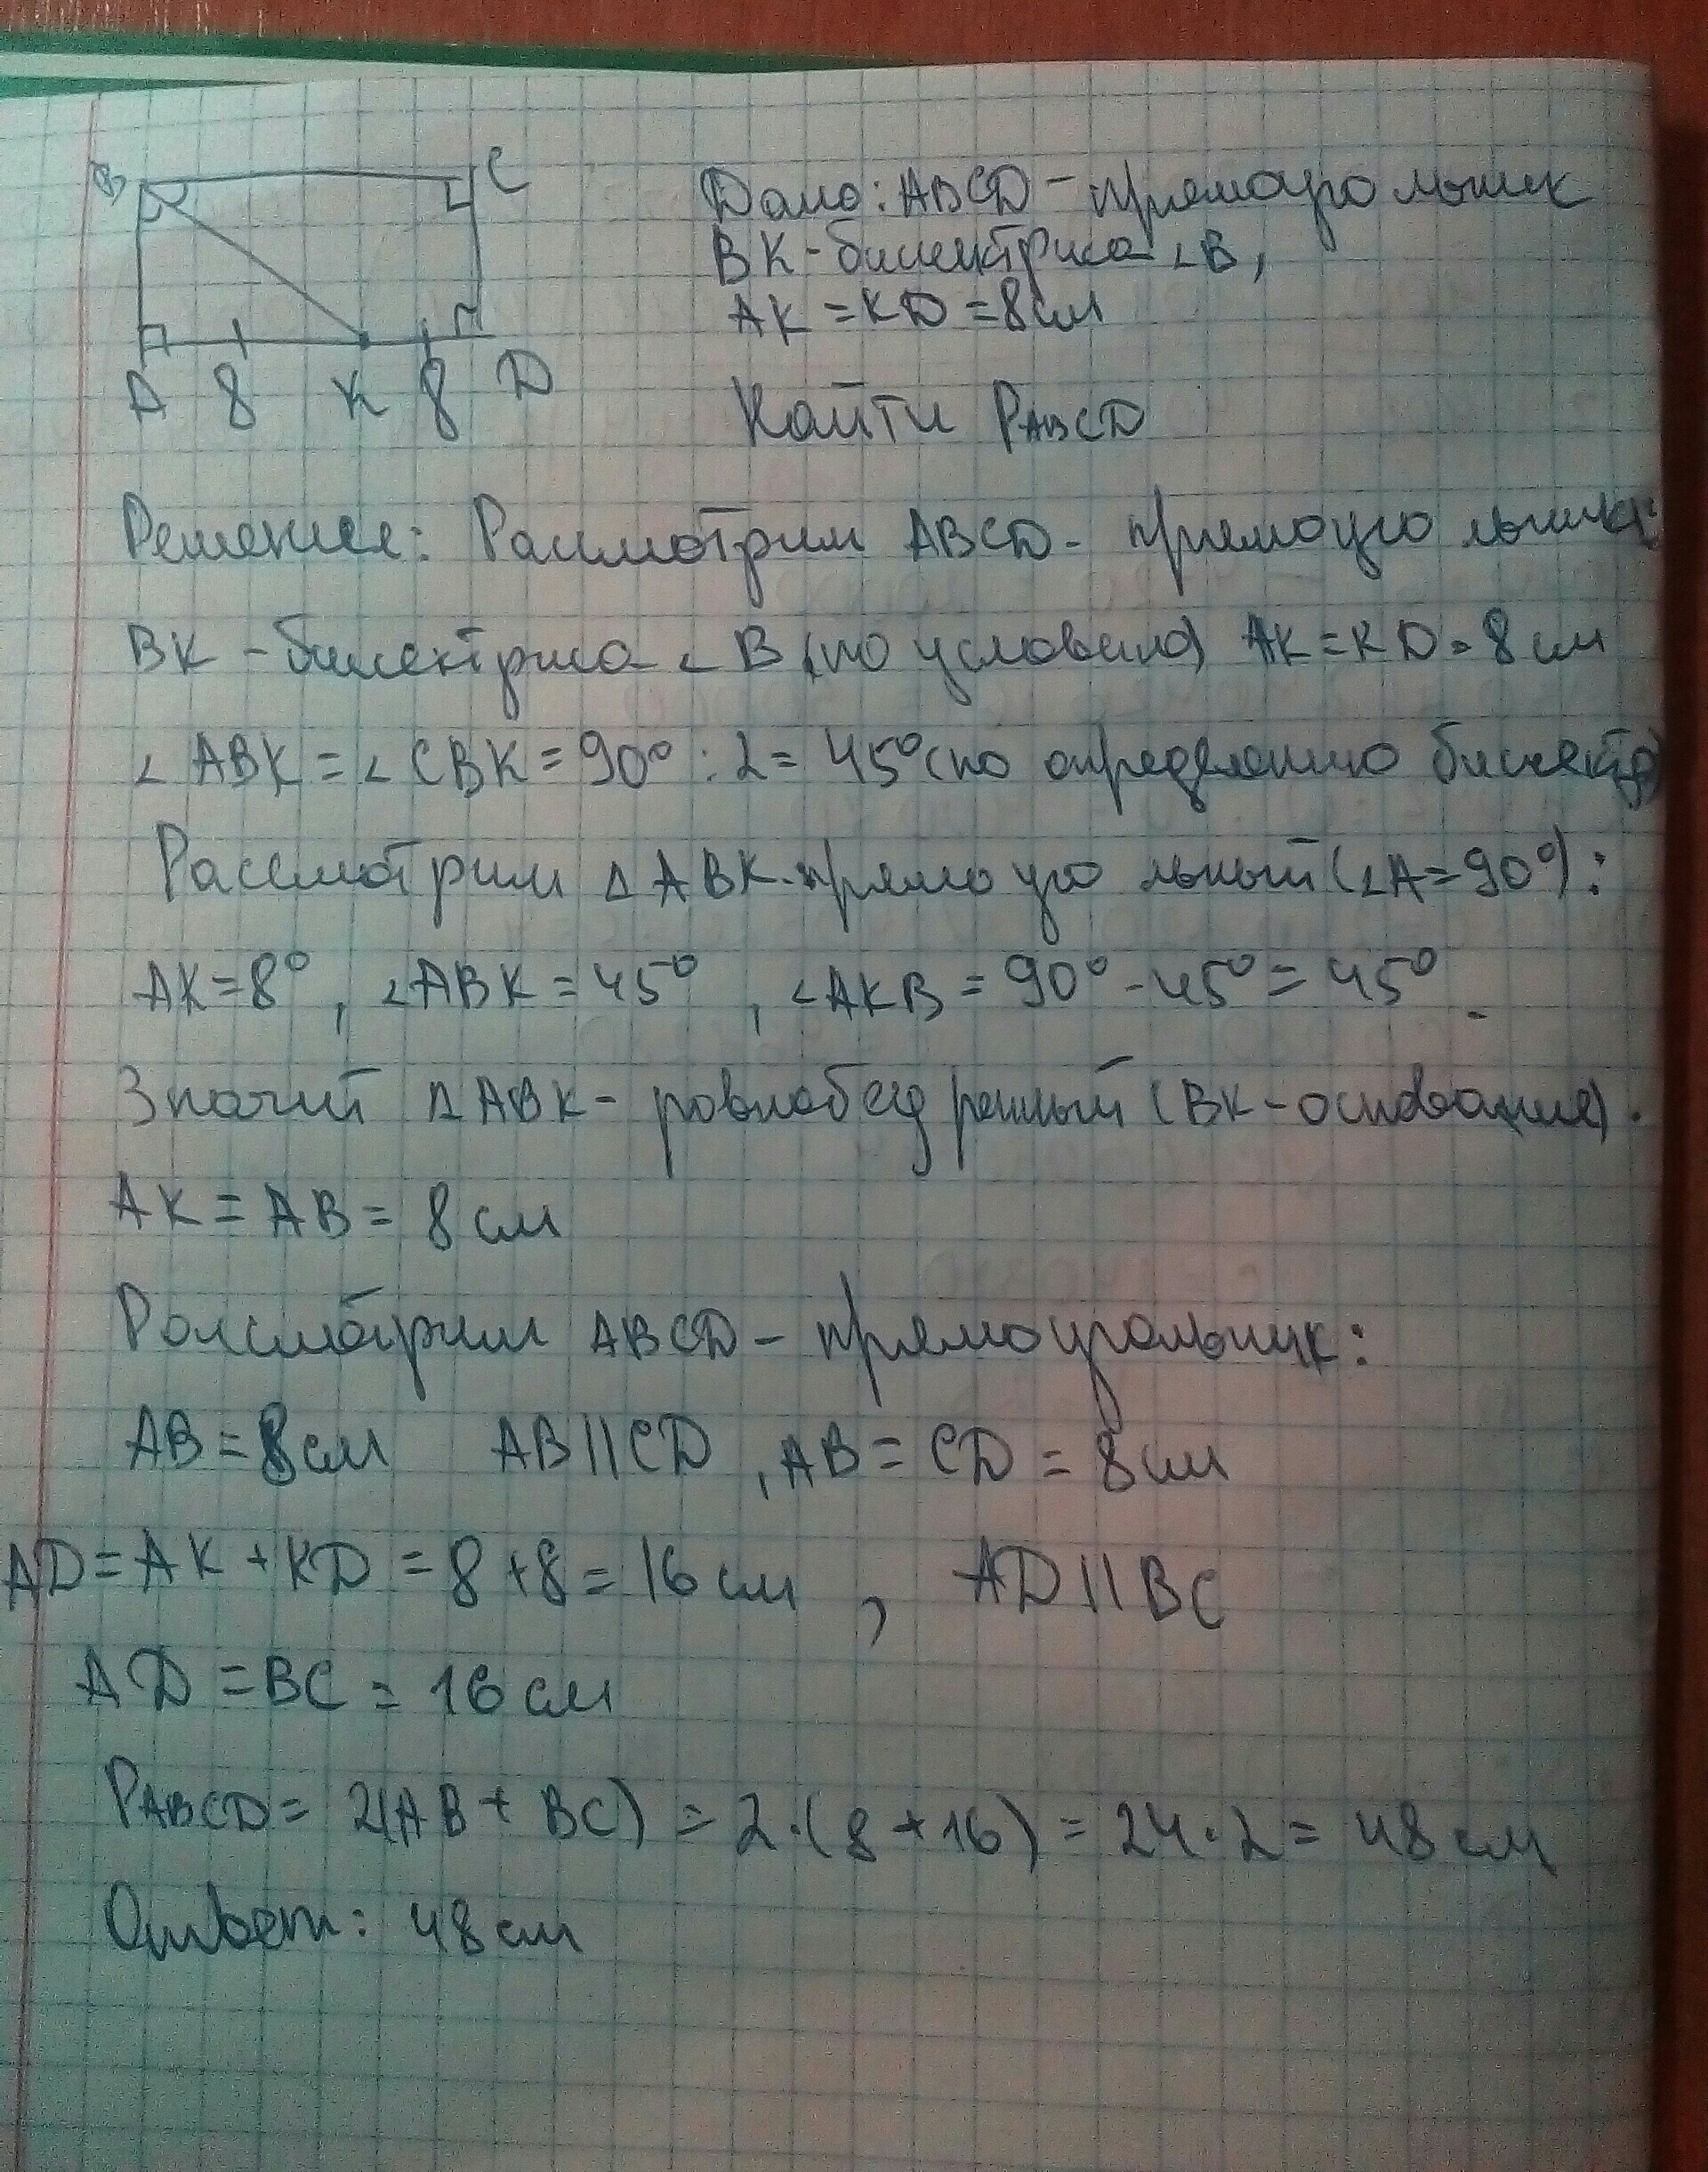 B C
A 8 K 8 D
Дано: ABCD - прямоугольник
BK - бисектриса ∠B,
AK = KD = 8 см
Найти PABCD
Решение: Рассмотрим ABCD - прямоугольник:
BK - бисектриса ∠B (по условию) AK = KD = 8 см
∠ABK = ∠CBK = 90° : 2 = 45° (по определению бисектр)
Рассмотрим △ABK - прямоугольный (∠A = 90°):
AK = 8°, ∠ABK = 45°, ∠AKB = 90° - 45° = 45°.
Значит △ABK - равнобедренный (BK - основание).
AK = AB = 8 см
Рассмотрим ABCD - прямоугольник:
AB = 8 см AB || CD, AB = CD = 8 см
AD = AK + KD = 8 + 8 = 16 см, AD || BC
AD = BC = 16 см
PABCD = 2(AB + BC) = 2·(8 + 16) = 24·2 = 48 см
Ответ: 48 см